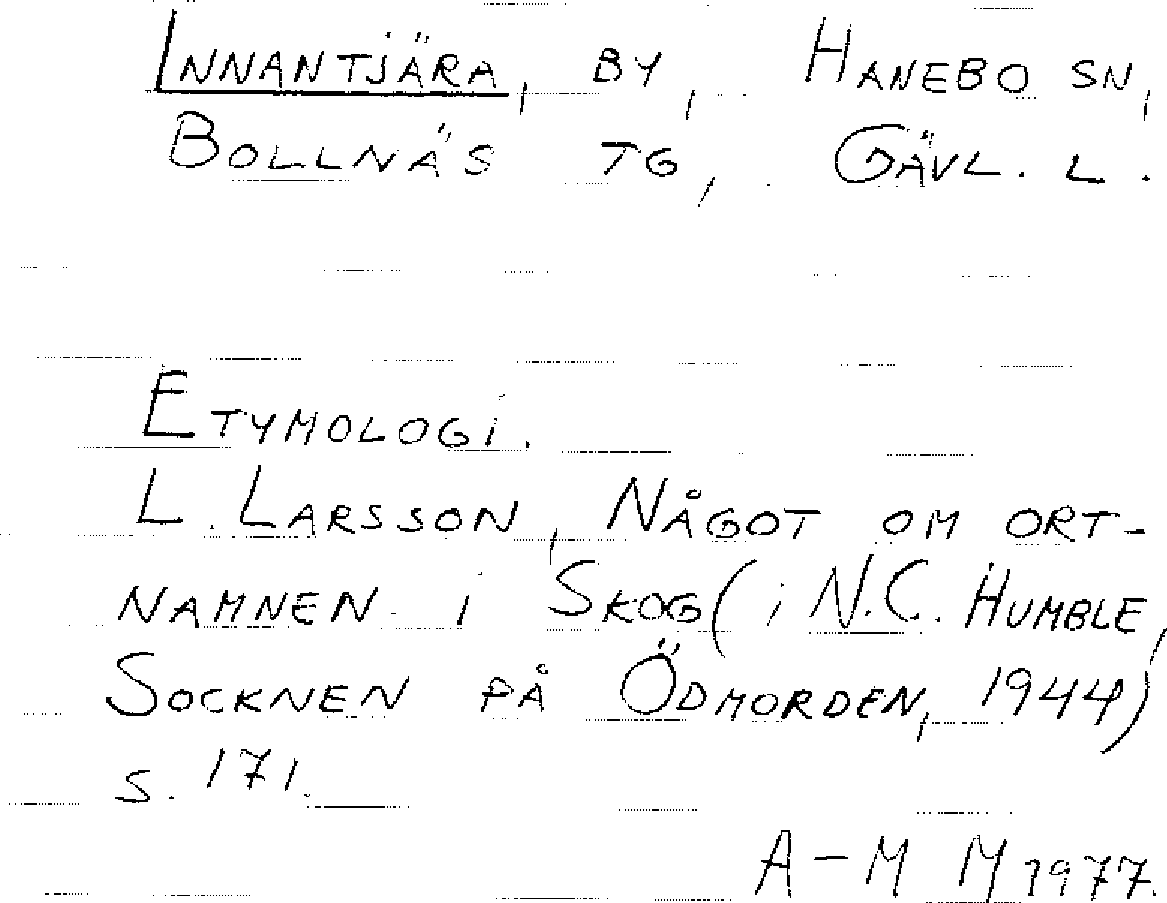 INNANTJÄRA, BY, HANEBO SN,
BOLLNÄS TG, GÄVL. L.
ETYMOLOGI.
L. LARSSON, NÅGOT OM ORT-
NAMNEN I SKOG (i N.C. HUMBLE,
SOCKNEN PÅ ÖDMORDEN, 1944)
S. 171.
A-M M 1977.